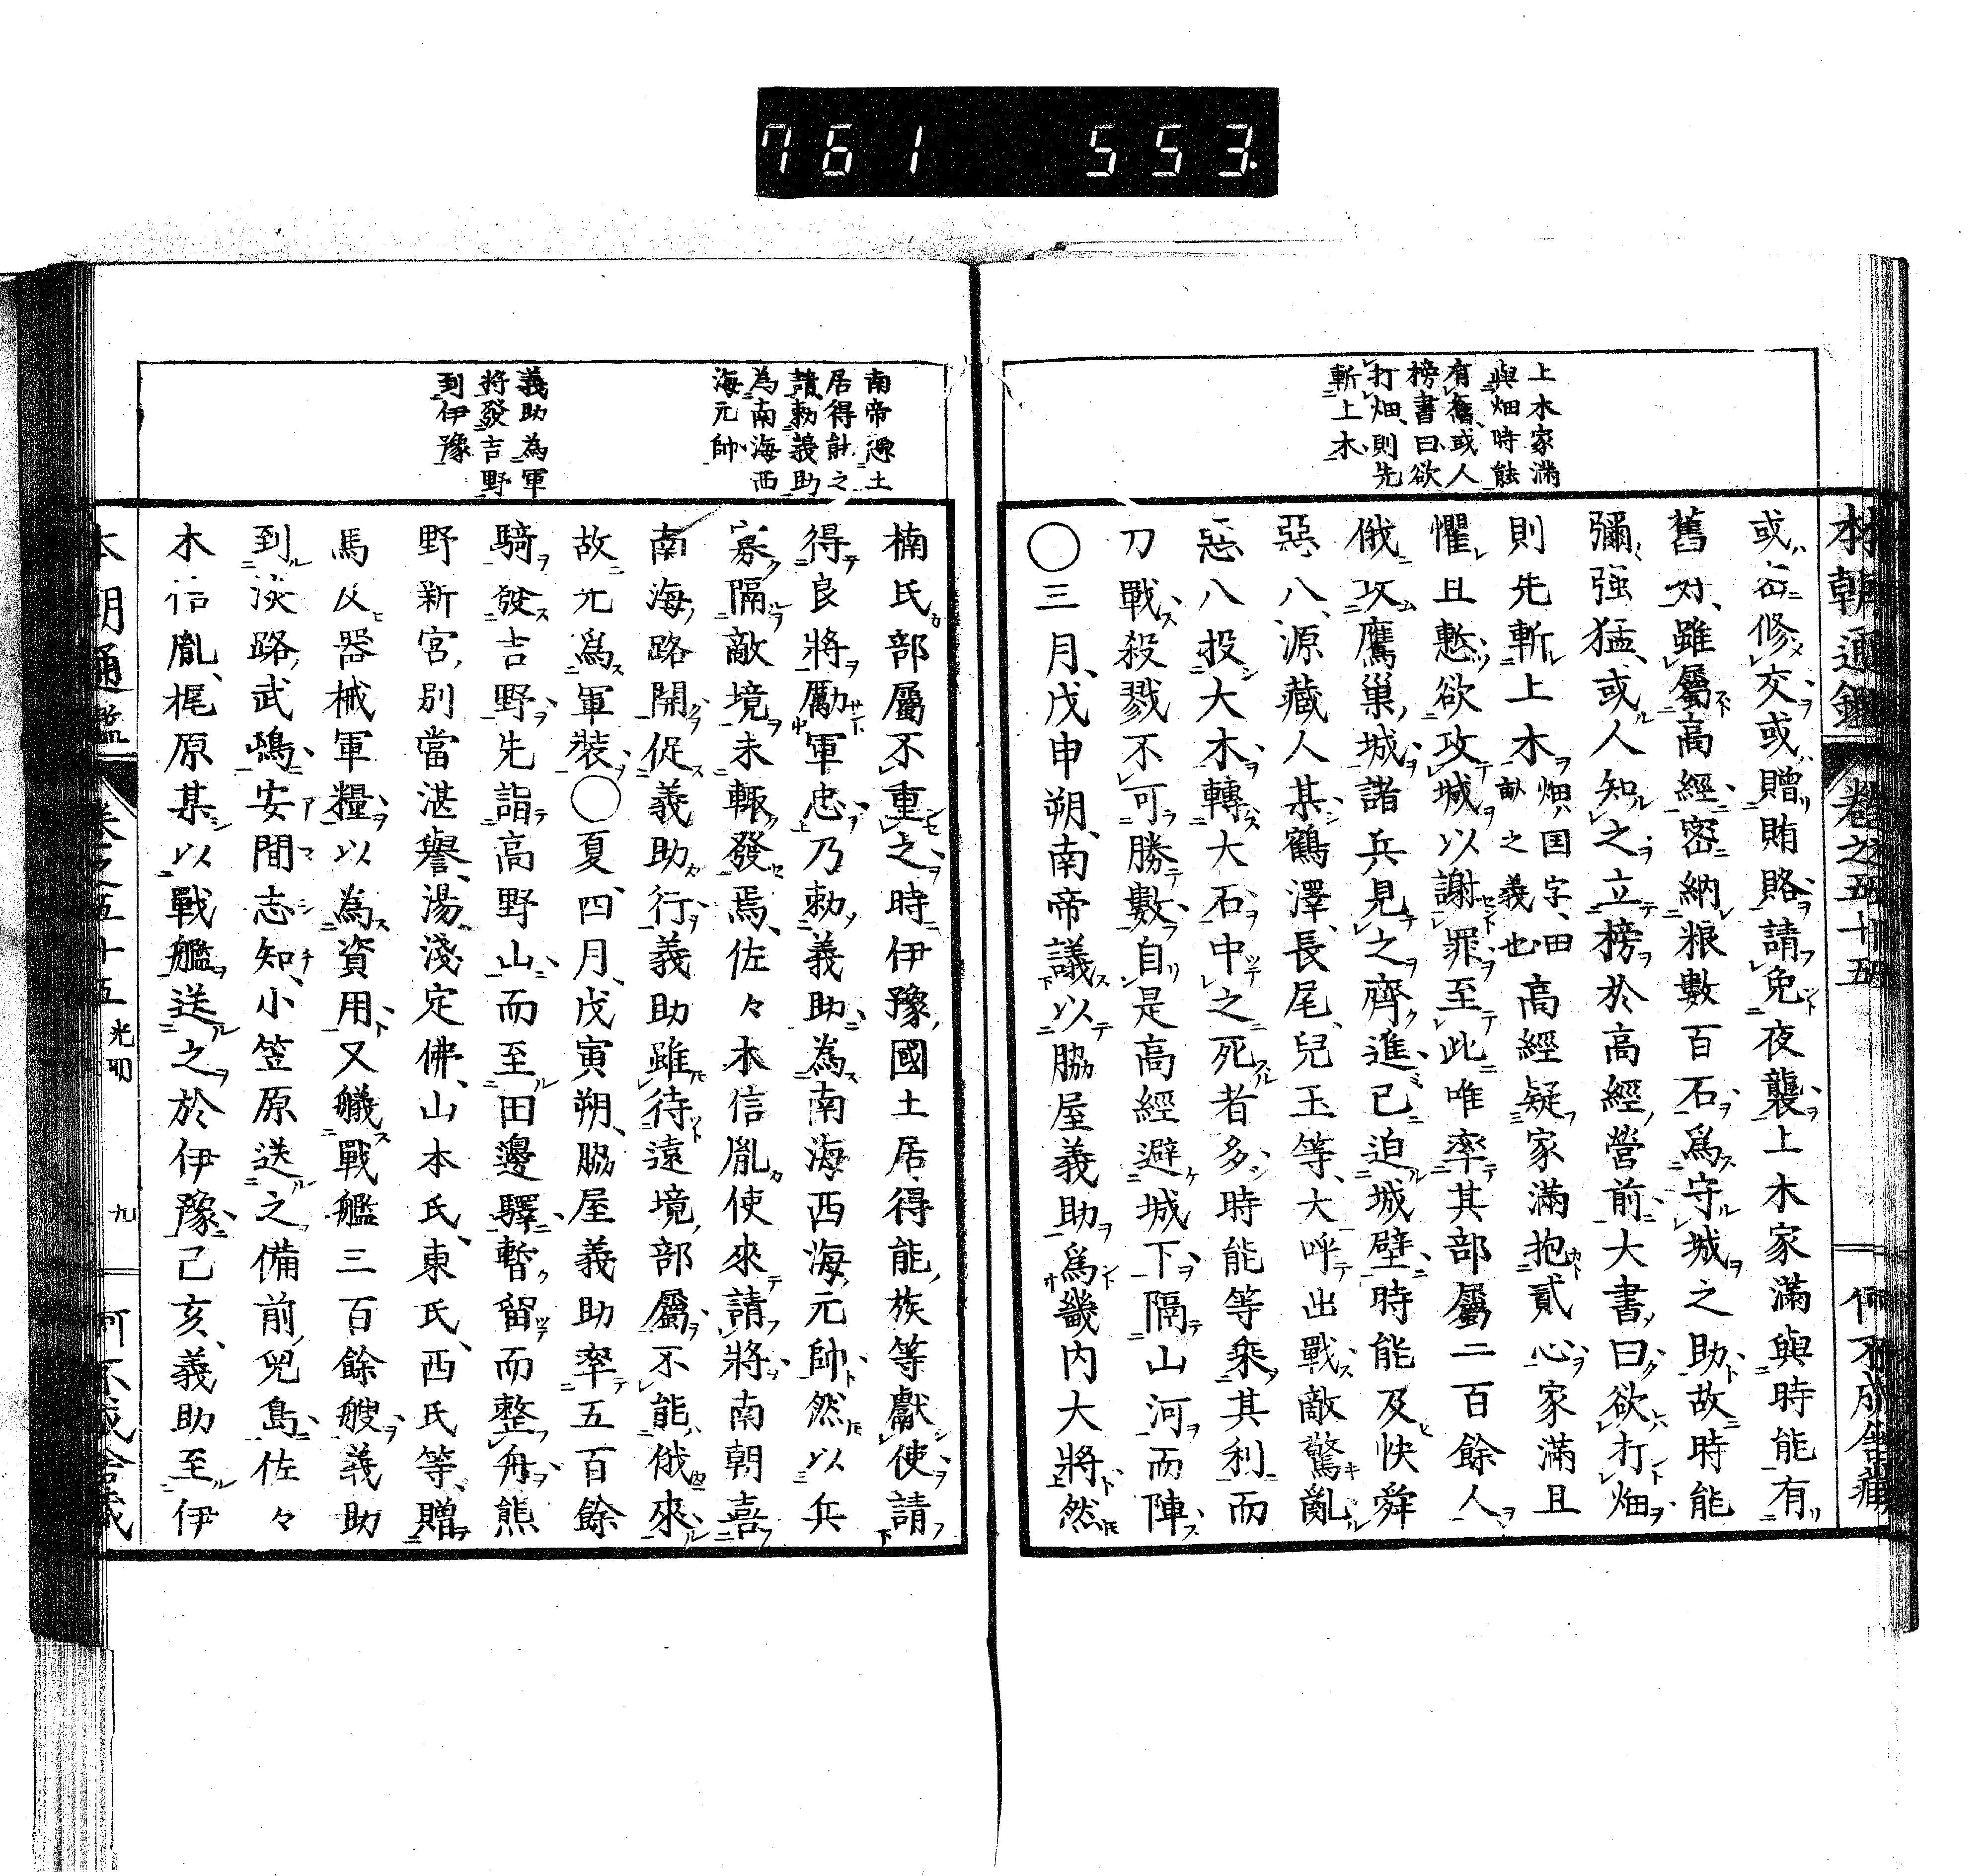 761 553
上木家滿
與畑時能
有舊或人
榜書曰欲
打畑則先
斬上木
本朝通鑑 卷之五十五
或密修交或贈賄賂請免夜襲上木家滿與時能有
舊好雖屬高經密納粮數百石爲守城之助故時能
彌強猛或人知之立榜於高經營前大書曰欲打畑
則先斬上木畑国字田畝之義也高經疑家滿抱貳心家滿且
懼且慙欲攻城以謝罪至此唯率其部屬二百餘人
俄攻鷹巢城諸兵見之齊進已迫城壁時能及快舜
惡八源藏人某鶴澤長尾兒玉等大呼出戰敵驚亂
惡八投大木轉大石中之死者多時能等乘其利而
刀戰殺戮不可勝數自是高經避城下隔山河而陣
○三月戊申朔南帝議以脇屋義助爲畿內大將然
南帝憑土
居得能之
請勅義助
為南海西
海元帥
義助為軍
將發吉野
到伊豫
楠氏部屬不重之時伊豫國土居得能族等獻使請
得良將勵軍忠乃勅義助為南海西海元帥然以兵
寡隔敵境未輙發焉佐々木信胤使來請將南朝喜
南海路開促義助行義助雖待遠境部屬不能俄來
故先爲軍裝○夏四月戊寅朔脇屋義助率五百餘
騎發吉野先詣高野山而至田邊驛暫留而整舟熊
野新宮別當湛譽湯淺定佛山本氏東氏西氏等贈
馬及器械軍糧以為資用又艤戰艦三百餘艘義助
到淡路武嶋安間志知小笠原送之備前兒島佐々
木信胤梶原某以戰艦送之於伊豫己亥義助至伊
本朝通鑑 卷之五十五 光明 九